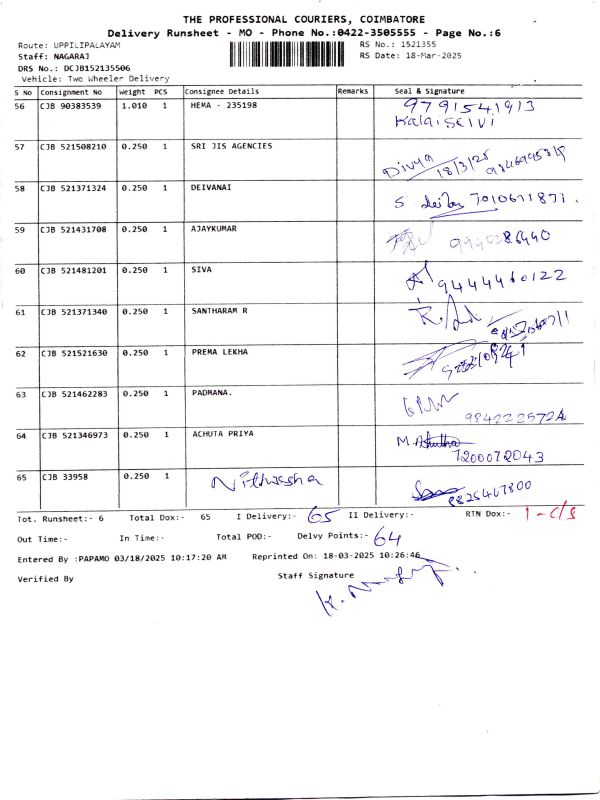 THE PROFESSIONAL COURIERS, COIMBATORE
Delivery Runsheet - MO - Phone No.:0422-3505555 - Page No.:6
Route: UPPILIPALAYAM RS No.: 1521355
Staff: NAGARAJ RS Date: 18-Mar-2025
DRS No.: DCJB152135506
Vehicle: Two Wheeler Delivery
S No Consignment No Weight PCS Consignee Details Remarks Seal & Signature
56 CJB 90383539 1.010 1 HEMA - 235198 9791541913
Kalaiselvi
57 CJB 521508210 0.250 1 SRI JIS AGENCIES Divya 18/3/25
58 CJB 521371324 0.250 1 DEIVANAI S 7010671871.
59 CJB 521431708 0.250 1 AJAYKUMAR 9940386440
60 CJB 521481201 0.250 1 SIVA 9444460122
61 CJB 521371340 0.250 1 SANTHARAM R
62 CJB 521521630 0.250 1 PREMA LEKHA
63 CJB 521462283 0.250 1 PADMANA. 9842225724
64 CJB 521346973 0.250 1 ACHUTA PRIYA M.
7200072043
65 CJB 33958 0.250 1 Nithissha 8825467800
Tot. Runsheet:- 6 Total Dox:- 65 I Delivery:- 65 II Delivery:- RTN Dox:- 1-c/s
Out Time:- In Time:- Total POD:- Delvy Points:- 64
Entered By :PAPAMO 03/18/2025 10:17:20 AM Reprinted On: 18-03-2025 10:26:46
Verified By Staff Signature